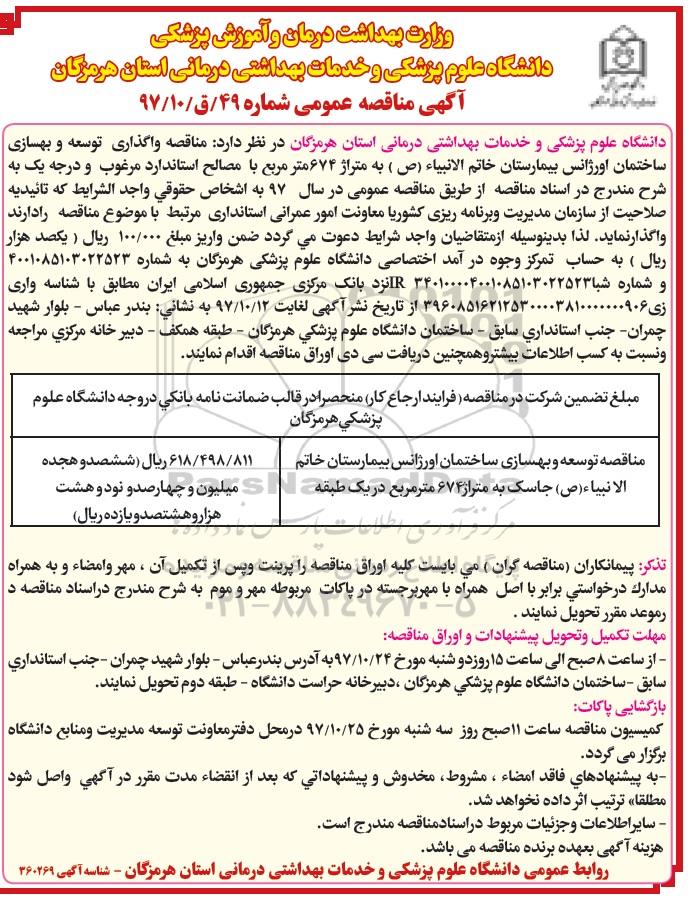 وزارت بهداشت درمان وآموزش پزشکی
دانشگاه علوم پزشکی و خدمات بهداشتی درمانی استان هرمزگان
آگهی مناقصه عمومی شماره ۴۹/ق/۹۷/۱۰
دانشگاه علوم پزشکی و خدمات بهداشتی درمانی استان هرمزگان در نظر دارد: مناقصه واگذاری توسعه و بهسازی
ساختمان اورژانس بیمارستان خاتم الانبیاء (ص ) به متراژ ۶۷۴متر مربع با مصالح استاندارد مرغوب و درجه یک به
شرح مندرج در اسناد مناقصه از طریق مناقصه عمومی در سال ۹۷ به اشخاص حقوقي واجد الشرایط که تائیدیه
صلاحیت از سازمان مدیریت وبرنامه ریزی کشوریا معاونت امور عمرانی استانداری مرتبط با موضوع مناقصه رادارند
واگذارنماید. لذا بدینوسیله ازمتقاضیان واجد شرایط دعوت می گردد ضمن واریز مبلغ ۱۰۰/۰۰۰ ریال ( یکصد هزار
ریال ) به حساب تمرکز وجوه در آمد اختصاصی دانشگاه علوم پزشکی هرمزگان به شماره ۴۰۰۱۰۸۵۱۰۳۰۲۲۵۲۳
و شماره شباIR ۳۴۰۱۰۰۰۰۴۰۰۱۰۸۵۱۰۳۰۲۲۵۲۳نزد بانک مرکزی جمهوری اسلامی ایران مطابق با شناسه واری
زی۳۹۶۰۸۵۱۶۲۱۲۵۳۰۰۰۰۳۸۱۰۰۰۰۰۰۰۹۰۶ از تاریخ نشر آگهی لغایت ۹۷/۱۰/۱۲ به نشاني: بندر عباس - بلوار شهید
چمران- جنب استانداري سابق - ساختمان دانشگاه علوم پزشکي هرمزگان - طبقه همکف - دبیر خانه مرکزي مراجعه
ونسبت به کسب اطلاعات بیشتروهمچنین دریافت سی دی اوراق مناقصه اقدام نمایند.
مبلغ تضمین شرکت در مناقصه( فرایند ارجاع کار) منحصرا در قالب ضمانت نامه بانکي دروجه دانشگاه علوم
پزشکي هرمزگان
مناقصه توسعه و بهسازی ساختمان اورژانس بیمارستان خاتم
الا نبیاء (ص ) جاسک به متراژ۶۷۴ مترمربع در یک طبقه
۶۱۸/۴۹۸/۸۱۱ ریال (ششصدو هجده
میلیون و چهارصدو نود و هشت
هزاروهشتصدو یازده ریال)
ParsNamadData
مرکز فرآوری اطلاعات پارس نماد داده ها
تذکر: پیمانکاران (مناقصه گران ) مي بایست کلیه اوراق مناقصه را پرینت وپس از تکمیل آن ، مهر وامضاء و به همراه
مدارك درخواستي برابر با اصل همراه با مهربرجسته در پاکات مربوطه مهر و موم به شرح مندرج دراسناد مناقصه د
رموعد مقرر تحویل نمایند .
۰۲۱-۸۸۳۴۹۶۷۰-۵
مهلت تکمیل وتحویل پیشنهادات و اوراق مناقصه:
- از ساعت ۸صبح الی ساعت ۱۵روزدو شنبه مورخ ۹۷/۱۰/۲۴به آدرس بندرعباس - بلوار شهید چمران -جنب استانداري
سابق -ساختمان دانشگاه علوم پزشکي هرمزگان ،دبیرخانه حراست دانشگاه - طبقه دوم تحویل نمایند.
بازگشایی پاکات:
کمیسیون مناقصه ساعت ۱۱صبح روز سه شنبه مورخ ۹۷/۱۰/۲۵ درمحل دفترمعاونت توسعه مدیریت ومنابع دانشگاه
برگزار مي گردد.
-به پیشنهادهاي فاقد امضاء ، مشروط، مخدوش و پیشنهاداتي که بعد از انقضاء مدت مقرر در آگهي واصل شود
مطلقا» ترتیب اثر داده نخواهد شد.
- سایراطلاعات وجزئیات مربوط دراسنادمناقصه مندرج است.
هزینه آگهی بعهده برنده مناقصه می باشد.
روابط عمومی دانشگاه علوم پزشکی و خدمات بهداشتی درمانی استان هرمزگان - شناسه آگهی ۳۶۰۲۶۹